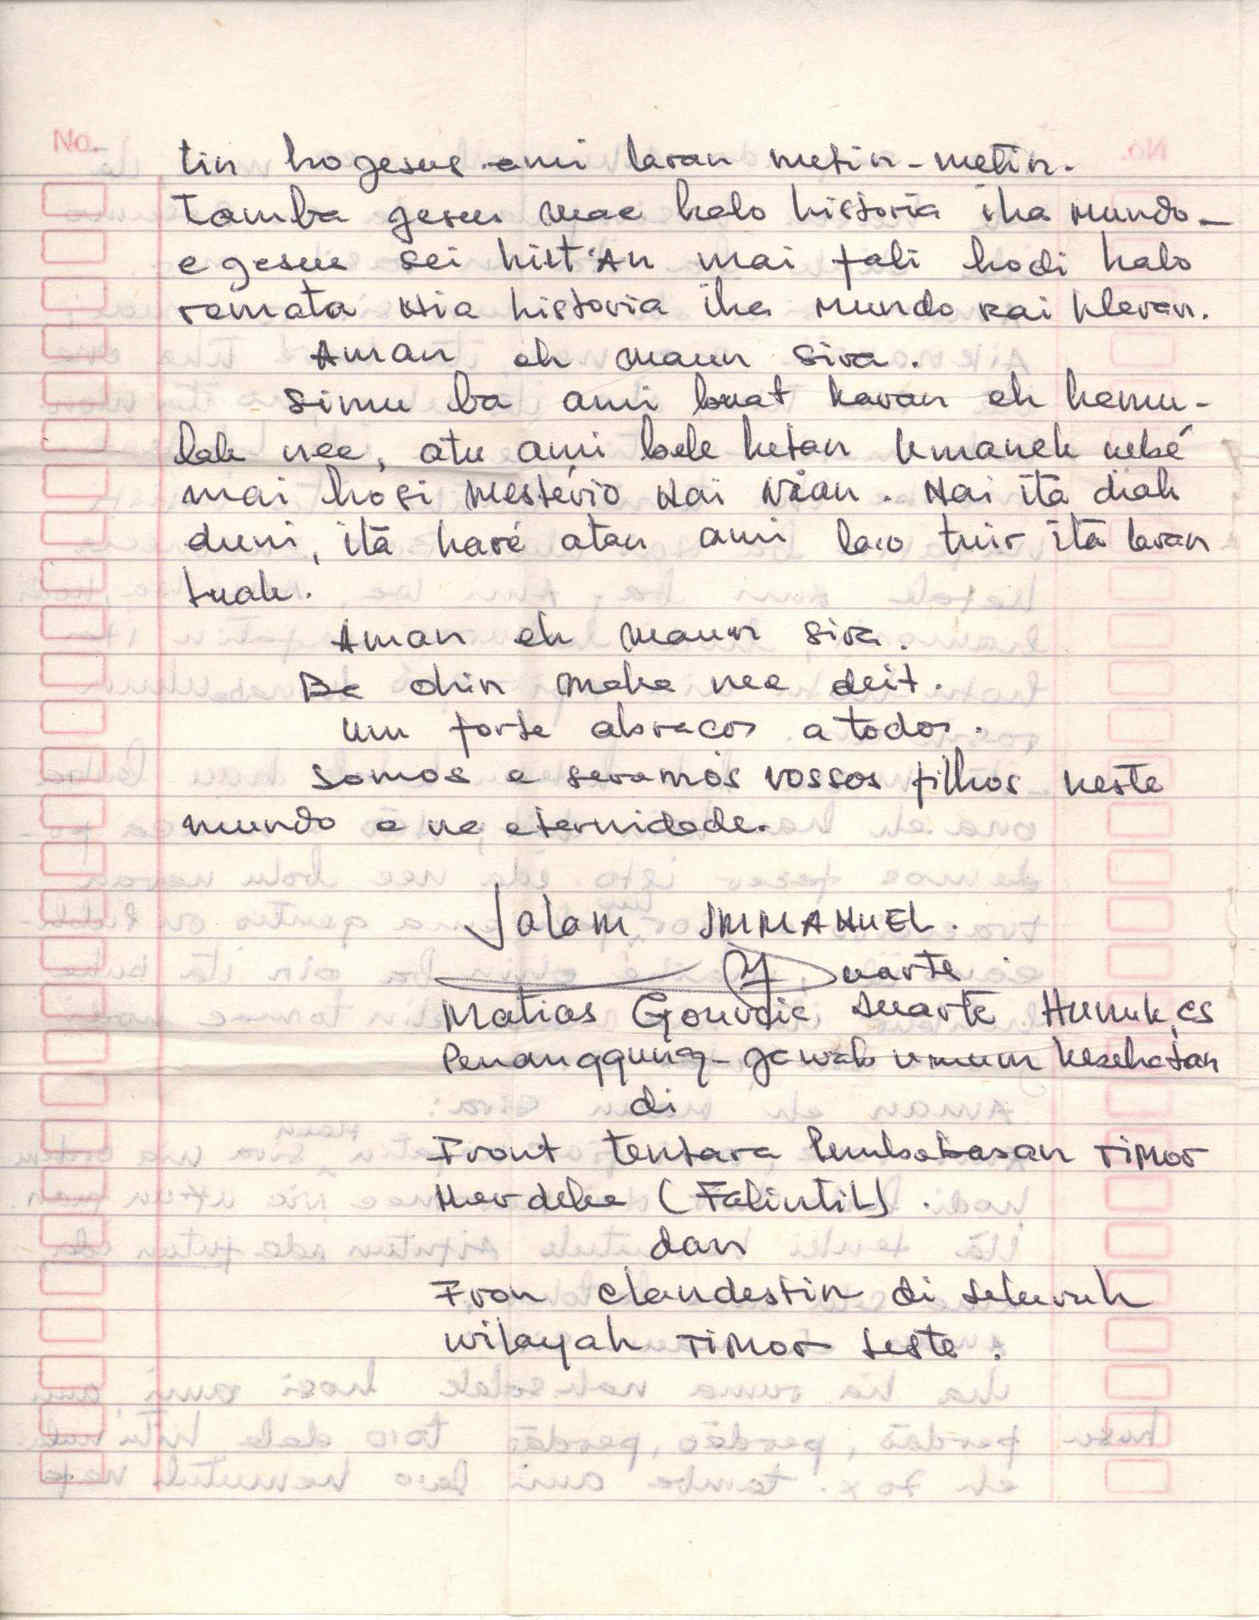 No.
tin ho jesus ami laran metin-metin.
Tamba jesus mae halo historia iha mundo-
e jesus sei hist An mai fali hodi halo
remata Nia historia iha mundo rai klaran.
Aman eh maun sira.
Simu ba ami buat karan eh hamu-
lak nee, atu ami bele hetan kmanek nebé
mai hosi mestério Nai Nian. Nai itá diak
duni, itá haré atan ami lao tuir itá laran
tuak.
Aman eh maun sira.
Ba ohin maka nee deit.
Um forte abracos a todos.
Somos e seramos vossos filhos neste
mundo e na eternidade.
Salam IMMANUEL.
Duarte
Matias Gouveia Duarte
Penanggung-jawab umum kesehatan
di
Front tentara Pembebasan TIMOR
Merdeka (Falintil).
dan
Fron clandestin di seluruh
wilayah TIMOR Leste.